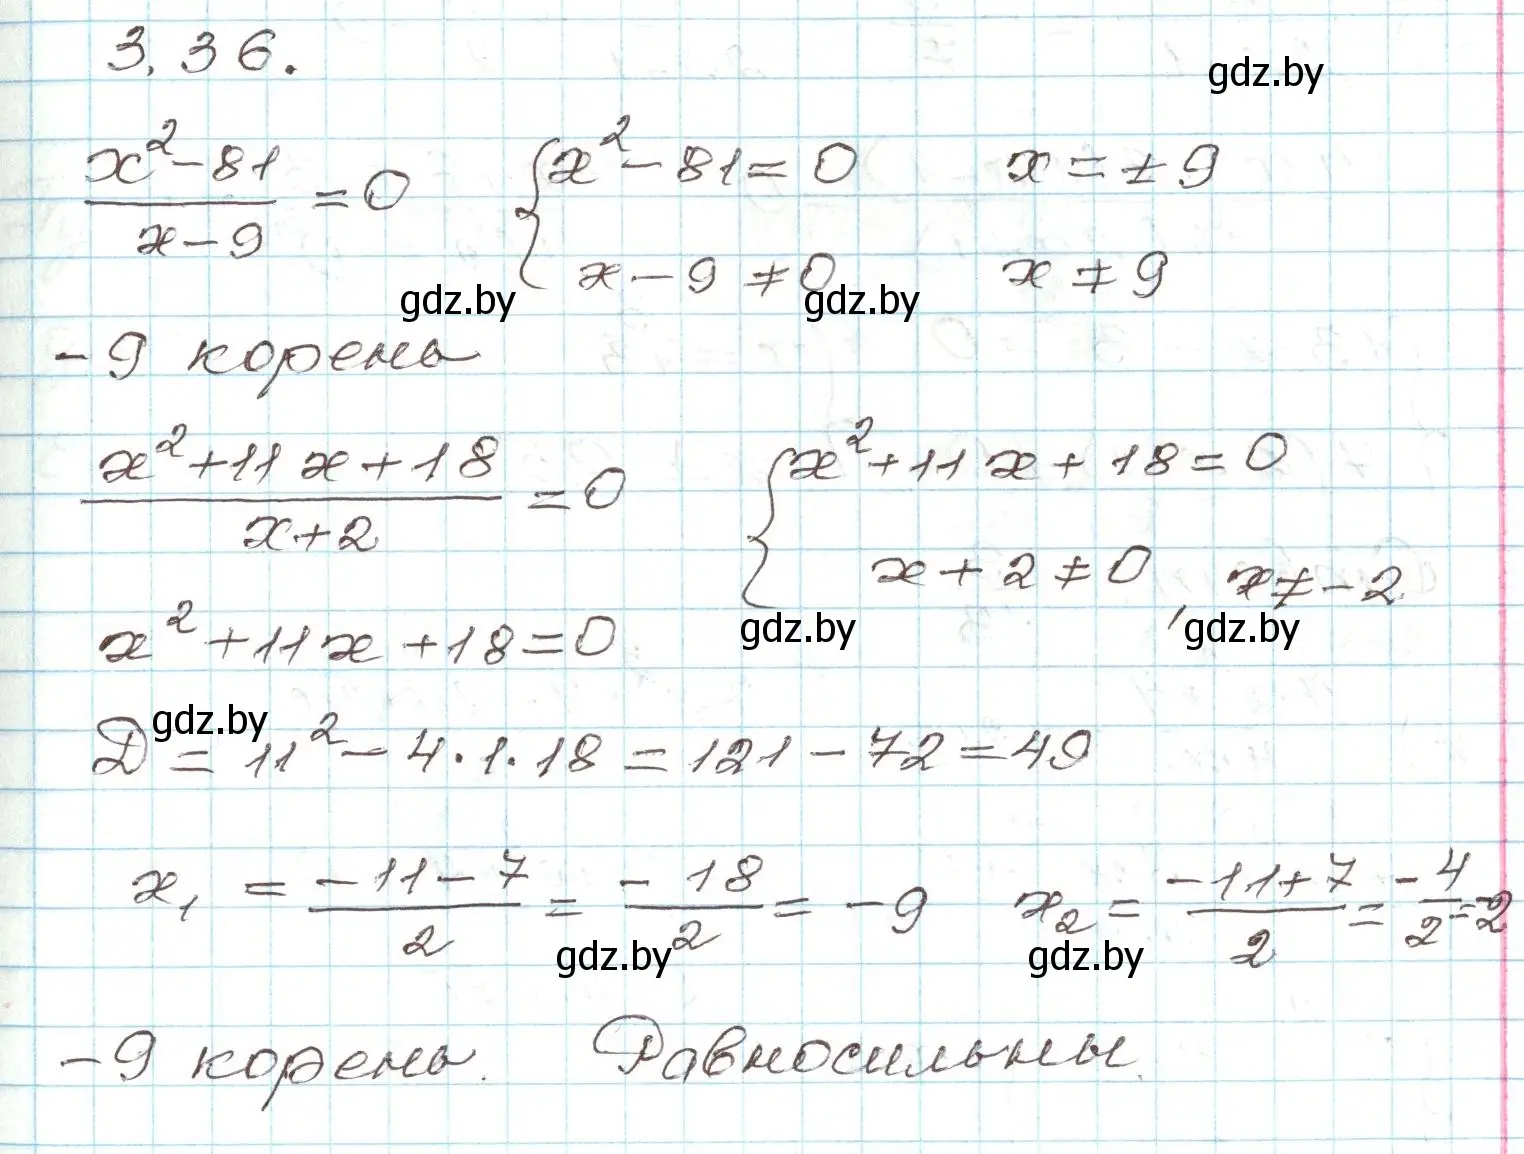 3.36.
gdz.by
(x² - 81)/(x - 9) = 0 { x² - 81 = 0 x = ±9
x - 9 ≠ 0 x ≠ 9
gdz.by gdz.by
-9 корень
(x² + 11x + 18)/(x + 2) = 0 { x² + 11x + 18 = 0
x + 2 ≠ 0, x ≠ -2
gdz.by gdz.by
x² + 11x + 18 = 0
gdz.by
D = 11² - 4·1·18 = 121 - 72 = 49
x₁ = (-11 - 7)/2 = -18/2 = -9 x₂ = (-11 + 7)/2 = -4/2 = -2
gdz.by gdz.by
-9 корень. Равносильны.